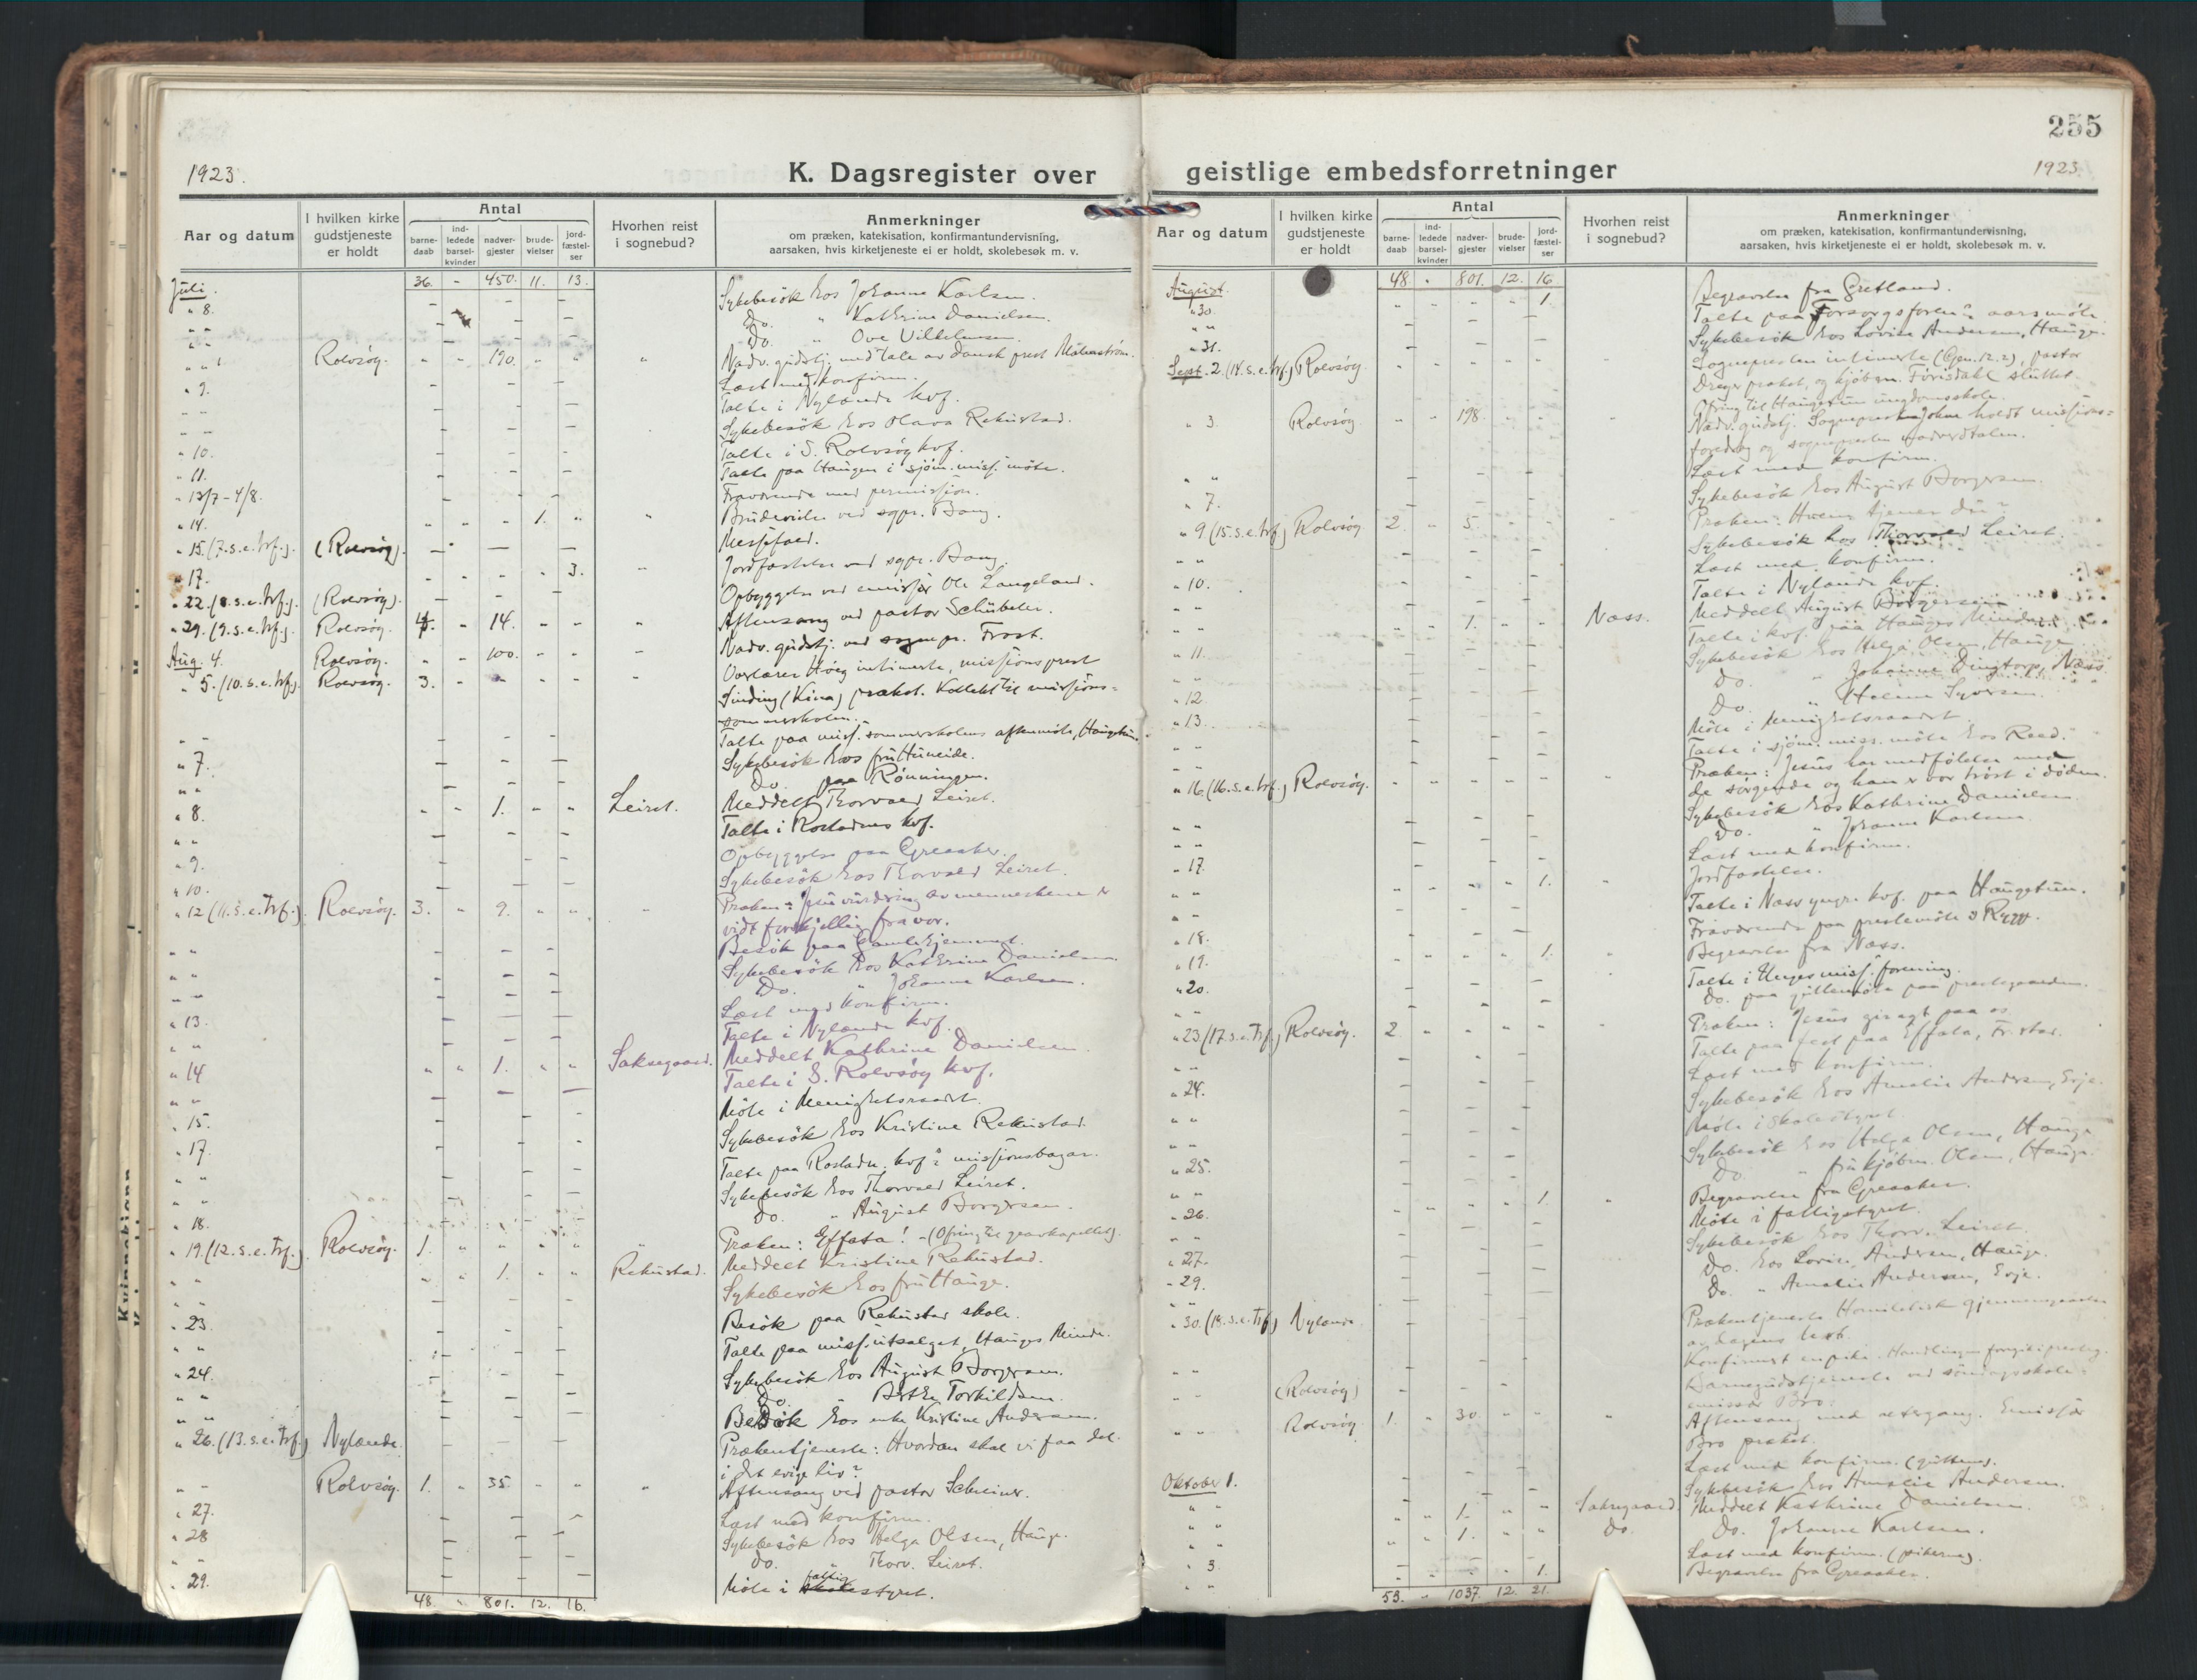 255
1923.
K. Dagsregister over
geistlige embedsforretninger
1923.
Aar og datum
I hvilken kirke gudstjeneste er holdt
Antal
barne-daab
ind-ledede barsel-kvinder
nadver-gjester
brude-vielser
jord-fæstel-ser
Hvorhen reist i sognebud?
Anmerkninger
om præken, katekisation, konfirmantundervisning,
aarsaken, hvis kirketjeneste ei er holdt, skolebesøk m. v.
36. - 450. 11. 13.
Juli.
" 8. Sykebesök hos Johanne Karlsen.
" " Do. " Kathrine Danielsen.
" " Do. " Ove Vilhelmsen.
" " Rolvsöy. " " 190. " " " Nadv. gudstj. med tale av dansk prest Malmström.
" 9. Læst med konfirm.
" " Talte i Nylænde kvf.
" " Sykebesök hos Olava Rekustad.
" 10. Talte i S. Rolvsöy kvf.
" 11. Talte paa Haugen i sjöm. miss. möte.
" 13/7 - 4/8. Fraværende med permission.
" 14. " " " 1. " " Brudevielse ved sgpr. Bang.
" 15. (7. s. e. trf.). (Rolvsöy). Messefald.
" 17. " " " " 3. " Jordfæstelse ved sgpr. Bang.
" 22. (8. s. e. trf.). (Rolvsöy). Opbyggelse ved emissær Ole Langeland.
" 29. (9. s. e. trf.). Rolvsöy. 4. " 14. " " " Aftensang ved pastor Schübeler.
Aug. 4. Rolvsöy. " " 100. " " " Nadv. gudstj. ved sognepr. Frost.
" 5. (10. s. e. trf.). Rolvsöy. 3. " " " " Overlærer Höeg intimerte, missionsprest
Sinding (Kina) præket. Kollekt til missions=
sommerskolen.
" " Talte paa miss. sommerskolens aftenmöte, Haugetun.
" 7. Sykebesök hos fru Huneide.
" " Do. paa Rönningen.
" 8. " " 1. " " Leiret. Meddelt Thorvald Leiret.
" " Talte i Rostadnes kvf.
" 9. Opbyggelse paa Greaaker.
" 10. Sykebesök hos Thorvald Leiret.
" 12 (11. s. e. trf.). Rolvsöy. 3. " 9. " " " Præken: Jesu vurdring av menneskene er
vidt forskjellig fra vor.
" " Besök paa Gamlehjemmet.
" " Sykebesök hos Kathrine Danielsen.
" " Do. " Johanne Karlsen.
" 13. Læst med konfirm.
" " Talte i Nylænde kvf.
" 14 " " 1. " " Saksegaard. Meddelt Kathrine Danielsen.
" " Talte i S. Rolvsöy kvf.
" 15. Möte i Menighetsraadet.
" 17. Sykebesök hos Kristine Rekustad.
" " Talte paa Rostadn. kvf.s missionsbazar.
" " Sykebesök hos Thorvald Leiret.
" 18. Do. " August Borgersen.
" 19. (12. s. e. trf.). Rolvsöy. 1. " " " " " Præken: Effata! - (Ofring til gravkapellet).
" " " " 1. " " Rekustad. Meddelt Kristine Rekustad.
" " Sykebesök hos fru Hauge.
" 23. Besök paa Rekustad skole.
" " Talte paa miss. utsalget, Hauges Minde.
" 24. Sykebesök hos August Borgersen.
" " Do. " Berthe Torkildsen.
" " Besök hos enke Kristine Andersen.
" 26. (13. s. e. trf.) Nylænde. Prækentjeneste: Hvordan skal vi faa del
i det evige liv?
" " Rolvsöy. 1. " 35. " " " Aftensang ved pastor Schreiner.
" 27. Læst med konfirm.
" 28 Sykebesök hos Helga Olsen, Hauge.
" " Do. Thorv. Leiret.
" 29. Möte i fattigstyret.
48. " 801. 12. 16.
Aar og datum
I hvilken kirke gudstjeneste er holdt
Antal
barne-daab
ind-ledede barsel-kvinder
nadver-gjester
brude-vielser
jord-fæstel-ser
Hvorhen reist i sognebud?
Anmerkninger
om præken, katekisation, konfirmantundervisning,
aarsaken, hvis kirketjeneste ei er holdt, skolebesøk m. v.
48. " 801. 12. 16
August.
" 30. " " " " 1. Begravelse fra Gretland.
" " Talte paa Forsorgsforen.s aarsmöte.
" 31. Sykebesök hos Lovise Andersen, Hauge.
Sept. 2. (14. s. e. trf.) Rolvsöy. Sognepresten intimerte (Gen. 12.2), pastor
Dreyer præket, og kjöbm. Förisdahl sluttet.
Ofring til Haugetun ungdomsskole.
" 3. Rolvsöy. " " 198. " " " Nadv. gudstj. Sogneprest Johne holdt missions=
foredrag og sognepresten nadverdtalen.
" " Læst med konfirm.
" 7. Sykebesök hos August Borgersen.
" 9 (15. s. e. trf.) Rolvsöy 2. " 5. " " " Præken: Hvem tjener du?
" " Sykebesök hos Thorvald Leiret.
" 10. Læst med konfirm.
" " Talte i Nylænde kvf.
" " 1. " " Næss. Meddelt August Borgersen
" 11. Talte i kvf. paa Hauges Minde.
" " Sykebesök hos Helga Olsen, Hauge
" 12 Do. " Johanne Dingtorp, Næss.
" 13. Do. " Helene Syversen.
" " Möte i Menighetsraadet.
" " Talte i sjöm. miss. möte hos Reed.
" 16. (16. s. e. trf.) Rolvsöy. Præken: Jesus har medfölelse med
de sörgende og han er vor tröst i döden.
" " Sykebesök hos Kathrine Danielsen
" " Do. " Johanne Karlsen
" 17. Læst med konfirm.
" " 1. " Jordfæstelse.
" " Talte i Næss yngr. kvf. paa Haugetun.
" 18. Fraværende paa prestemöte i Rygge.
" 19. " " " " 1. " Begravelse fra Næss.
" 20. Talte i Unges miss. forening.
" " Do. paa guttemöte paa prestegaarden.
" 23. (17. s. e. trf.) Rolvsöy. 2. " " " " " Præken: Jesus gir agt paa os.
" " Talte paa fest paa Effata, Fr.stad.
" 24. Læst med konfirm.
" " Sykebesök hos Amalie Andersen, Evje.
" " Möte i skolestyret.
" 25. Sykebesök hos Helga Olsen, Hauge
" " Do. " fru kjöbm. Olsen, Hauge.
" 26. " " " " 1. " Begravelse fra Greaaker.
" " Möte i fattigstyret.
" 27. Sykebesök hos Thorv. Leiret.
" 29. Do. hos Lovise Andersen, Hauge.
" " Do. " Amalie Andersen, Evje.
" 30. (18. s. e. trf.) Nylænde Prækentjeneste. Homiletisk gjennemgaaelse
av dagens tekst.
" " Konfirmert en pike. Handlingen foregik i presteg.
" " (Rolvsöy) Barnegudstjeneste ved söndagsskole=
emissær Bro.
" " Rolvsöy 1. " 30. " " " Aftensang med altergang. Emissær
Bro prækte.
Oktober 1. Læst med konfirm. (guttene).
" " Sykebesök hos Amalie Andersen.
" " " " 1. " " Saksegaard. Meddelt Kathrine Danielsen.
" " " " 1. " " Do. Do. Johanne Karlsen.
" 3. Læst med konfirm. (pikerne).
" " " " " " 1. Begravelse fra Greaaker.
53. " 1037. 12. 21.